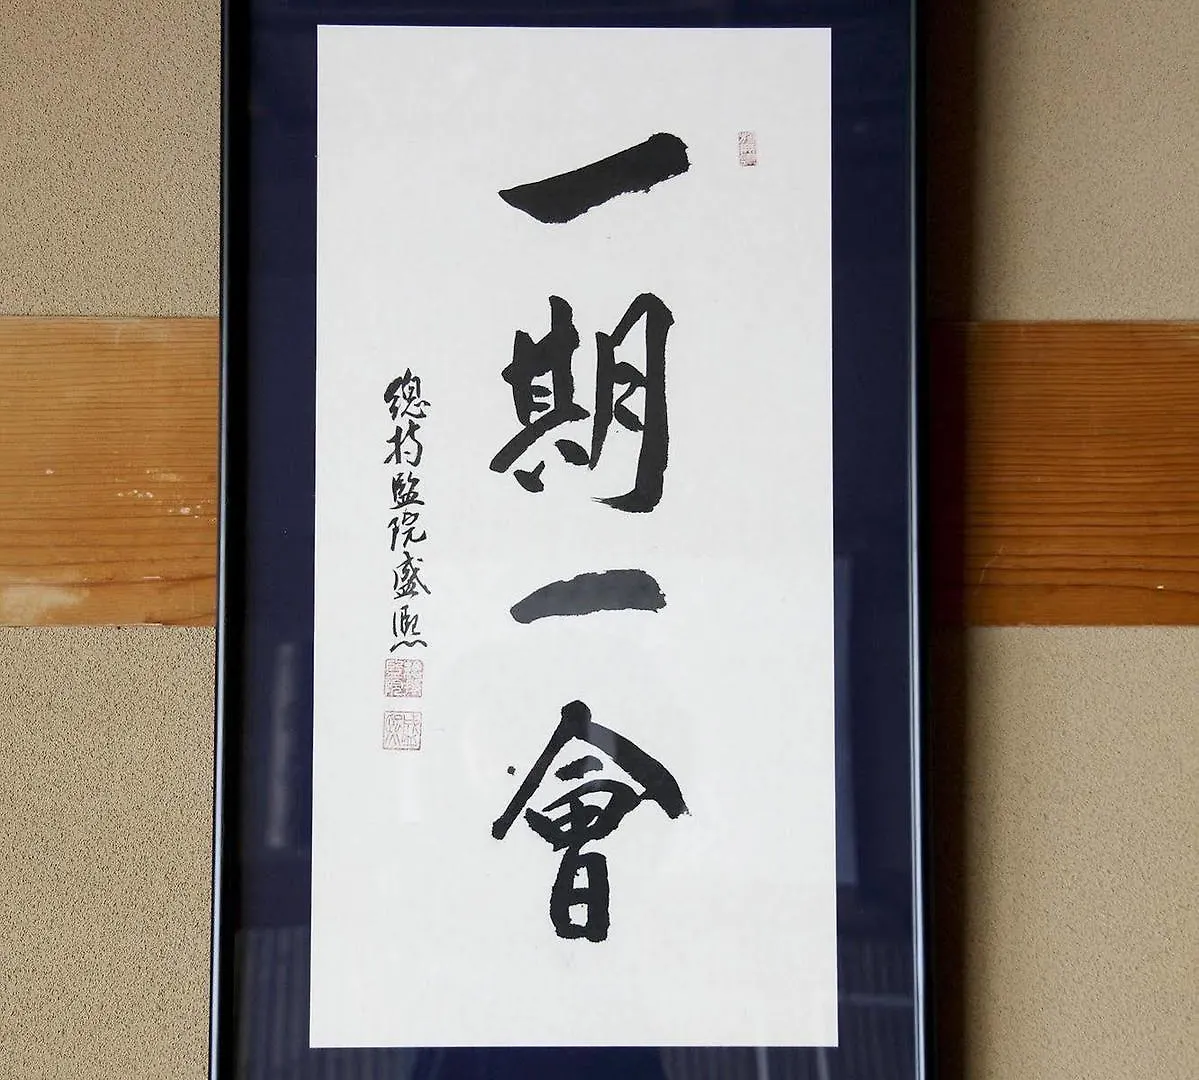 一期一會
總持監院盛熙